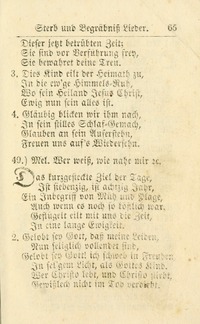 Sterb und Begräbniß Lieder. 65
Dieser jetzt betrübten Zeit:
Sie sind vor Sorgen frey,
Sie bewahret deine Treu.
3. Dies Kind eilt der Heimath zu,
In die ew'ge Himmels-Ruh,
Wo sein Heiland Jesus Christ,
Ewig nun sein alles ist.
4. Gläubig blicken wir ihm nach,
In sein stilles Schlaf-Gemach,
Glauben an sein Auferstehn,
Freuen uns auf's Wiedersehn.
49.) Mel. Wer weiß, wie nahe mir ec.
Das kurzgesteckte Ziel der Tage,
Ist siebenzig, ist achtzig Jahr,
Ein Innbegriff von Müh und Plage,
Auch wenn es noch so köstlich war.
Geflügelt eilt mit uns die Zeit,
In eine lange Ewigkeit.
2. Gelobt sey Gott, daß meine Leiden,
Nun seliglich vollendet sind,
Gelobt sey Gott ich schweb in Freuden
In sel'gem Licht, als Gottes Kind.
Wer Christo lebt, und Christo stirbt,
Gewißlich nicht im Tod verdirbt.